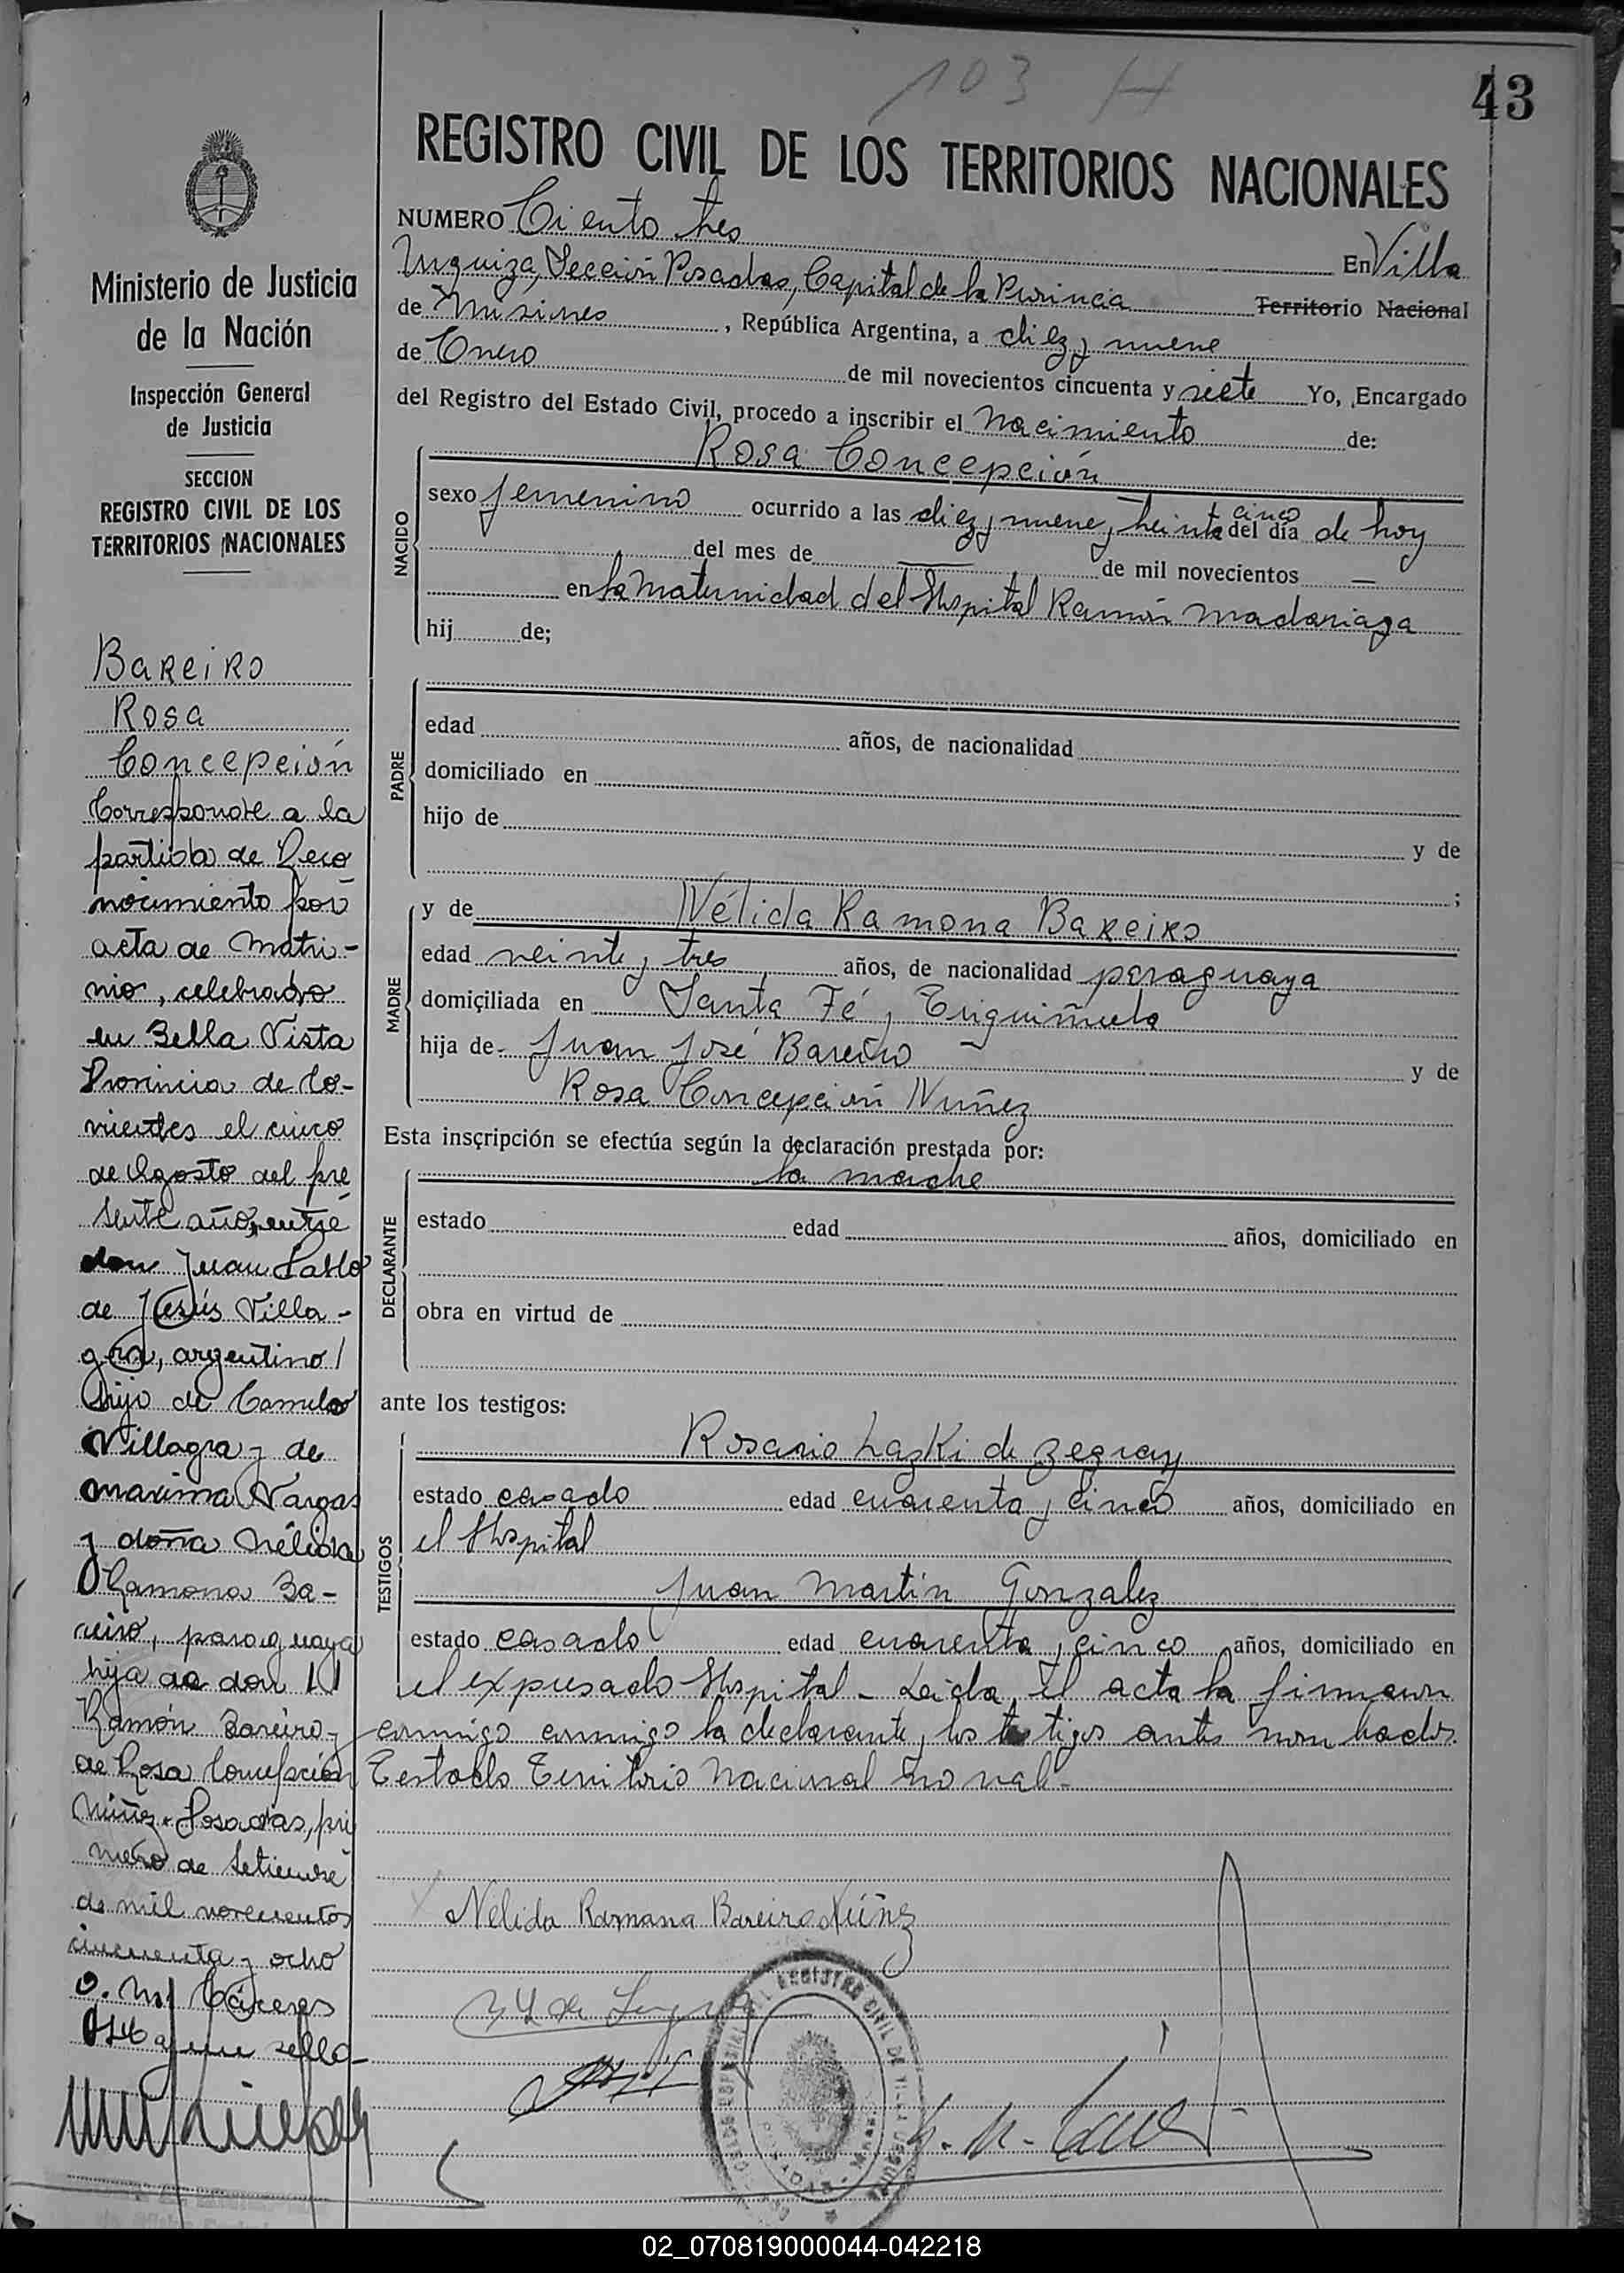 103 H
43
REGISTRO CIVIL DE LOS TERRITORIOS NACIONALES
NUMERO Ciento tres En Villa
Urquiza, Sección Posadas, Capital de la Provincia Territorio Nacional
de Misiones , República Argentina, a diez y nueve
de Enero de mil novecientos cincuenta y siete Yo, Encargado
del Registro del Estado Civil, procedo a inscribir el Nacimiento de:
NACIDO
Rosa Concepción
sexo femenino ocurrido a las diez y nueve y treinta cinco del día de hoy
del mes de — de mil novecientos —
en la Maternidad del Hospital Ramón Madariaga
hij de;
PADRE
edad años, de nacionalidad
domiciliado en
hijo de y de
;
MADRE
y de Nélida Ramona Bareiro
edad veinte y tres años, de nacionalidad paraguaya
domiciliada en Santa Fé y
hija de Juan José Bareiro y de
Rosa Concepción Nuñez
Esta inscripción se efectúa según la declaración prestada por:
DECLARANTE
la madre
estado edad años, domiciliado en
obra en virtud de
ante los testigos:
TESTIGOS
Rosario Lazki de
estado casado edad cuarenta y cinco años, domiciliado en
el Hospital
Juan Martín Gonzalez
estado casado edad cuarenta y cinco años, domiciliado en
el expresado Hospital - Leida el acta la firmaron
conmigo conmigo la declarante y los testigos antes nombrados.
Testado Territorio Nacional no vale-
Nélida Ramona Bareiro Núñez
Ministerio de Justicia
de la Nación
Inspección General
de Justicia
SECCION
REGISTRO CIVIL DE LOS
TERRITORIOS NACIONALES
Bareiro
Rosa
Concepción
Corresponde a la
partida de Reco
nocimiento por
acta de Matri-
nio, celebrado
en Bella Vista
Provincia de Co-
rrientes el cinco
de Agosto del pre
sente año, entre
don Juan Pablo
de Jesús Villa-
gra, argentino /
hijo de Camilo
Villagra y de
Maxima Vargas
y doña Nélida
Ramona Ba-
reiro, paraguaya
hija de don
Ramón Bareiro y
de Rosa Concepción
Núñez. Posadas, pri
mero de Setiembre
de mil novecientos
cincuenta y ocho
Cáceres
Hay un sello-
REGISTRO CIVIL DE
02_070819000044-042218